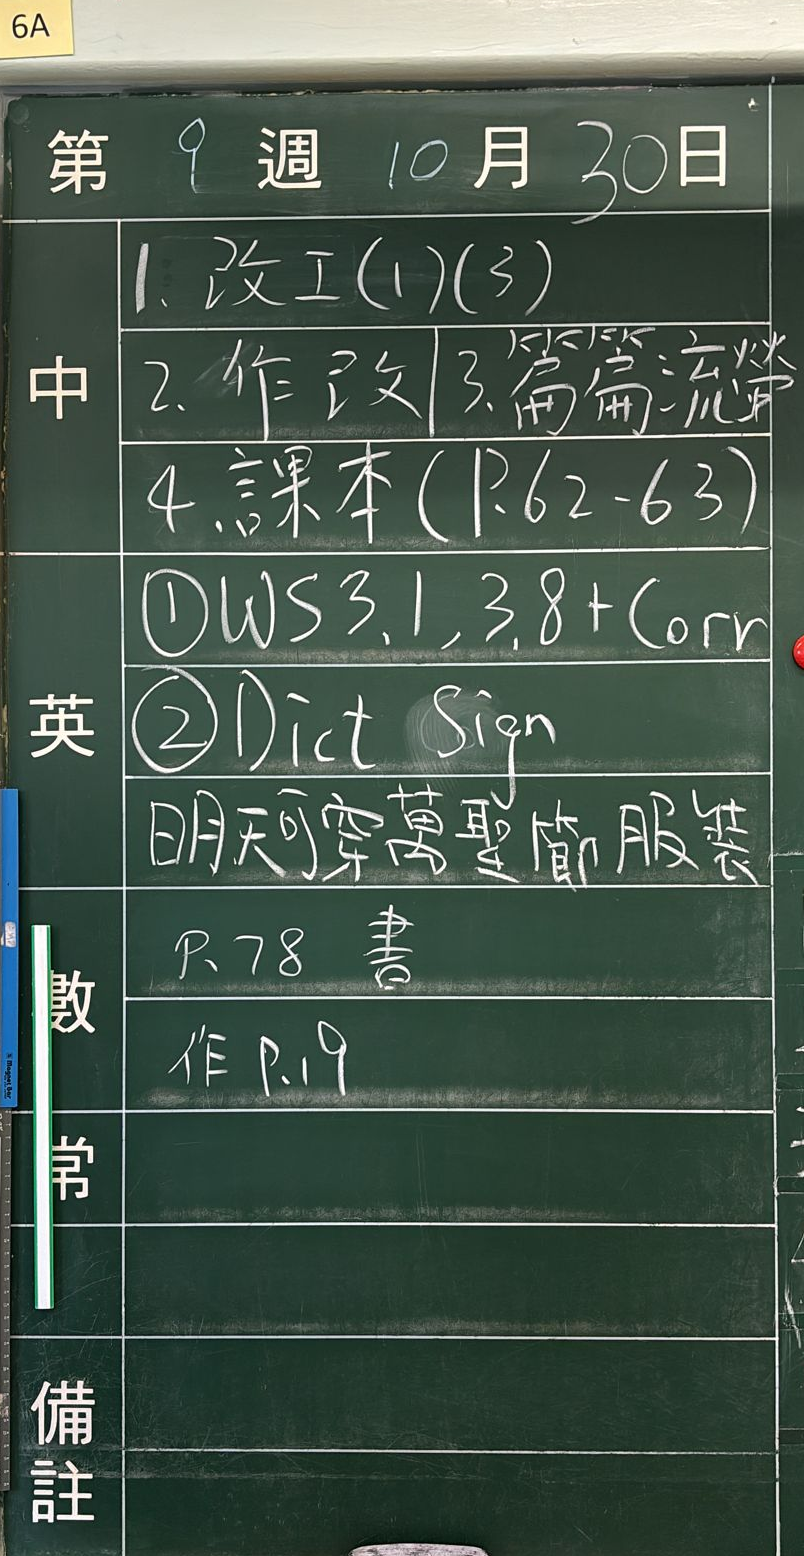 6A
第 9 週 10 月 30 日
中
1. 改工(1)(3)
2. 作改|3. 篇篇流螢
4. 課本(P.62-63)
英
①WS 3.1, 3.8 + Corr
②Dict Sign
明天可穿萬聖節服裝
數
P.78 書
作 P.19
常
備註